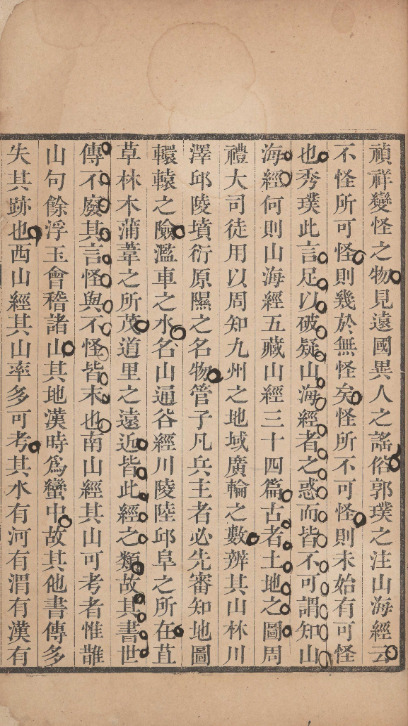 禎祥變怪之物見遠國異人之謠俗郭璞之注山海經云
不怪所可怪則幾於無怪矣怪所不可怪則未始有可怪
也秀璞此言足以破疑山海經者之惑而皆不可謂知山
海經何則山海經五藏山經三十四篇古者土地之圖周
禮大司徒用以周知九州之地域廣輪之數辨其山林川
澤邱陵墳衍原隰之名物管子凡兵主者必先審知地圖
轘轅之險濫車之水名山通谷經川陵陸邱阜之所在苴
草林木蒲葦之所茂道里之遠近皆此經之類故其書世
傳不廢其言怪與不怪皆末也南山經其山可考者惟䧿
山句餘浮玉會稽諸山其地漢時爲蠻中故其他書傳多
失其跡也西山經其山率多可考其水有河有渭有漢有